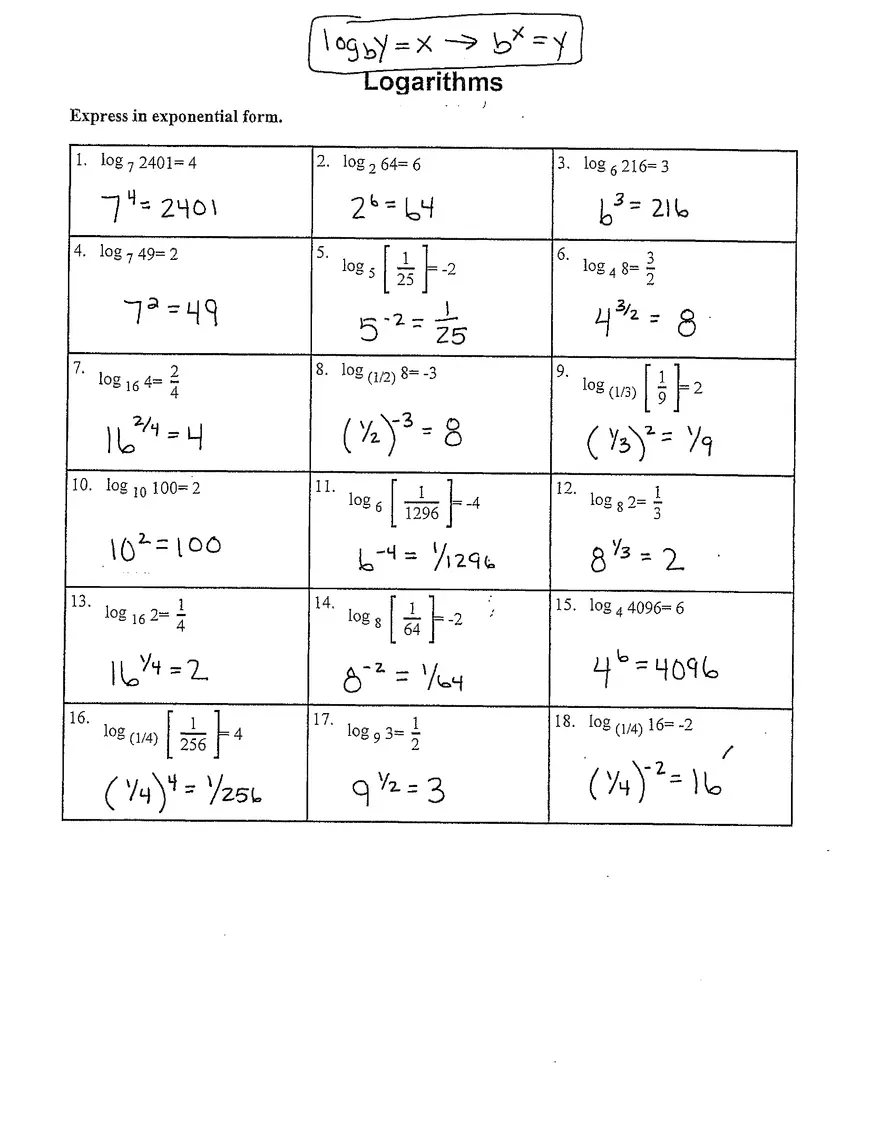 log_b y = x → b^x = y
Logarithms
Express in exponential form.
1. log_7 2401= 4
7^4 = 2401
2. log_2 64= 6
2^6 = 64
3. log_6 216= 3
6^3 = 216
4. log_7 49= 2
7^2 = 49
5. log_5 [1/25]= -2
5^-2 = 1/25
6. log_4 8= 3/2
4^3/2 = 8
7. log_16 4= 2/4
16^2/4 = 4
8. log_(1/2) 8= -3
(1/2)^-3 = 8
9. log_(1/3) [1/9]= 2
(1/3)^2 = 1/9
10. log_10 100= 2
10^2 = 100
11. log_6 [1/1296]= -4
6^-4 = 1/1296
12. log_8 2= 1/3
8^1/3 = 2
13. log_16 2= 1/4
16^1/4 = 2
14. log_8 [1/64]= -2
8^-2 = 1/64
15. log_4 4096= 6
4^6 = 4096
16. log_(1/4) [1/256]= 4
(1/4)^4 = 1/256
17. log_9 3= 1/2
9^1/2 = 3
18. log_(1/4) 16= -2
(1/4)^-2 = 16